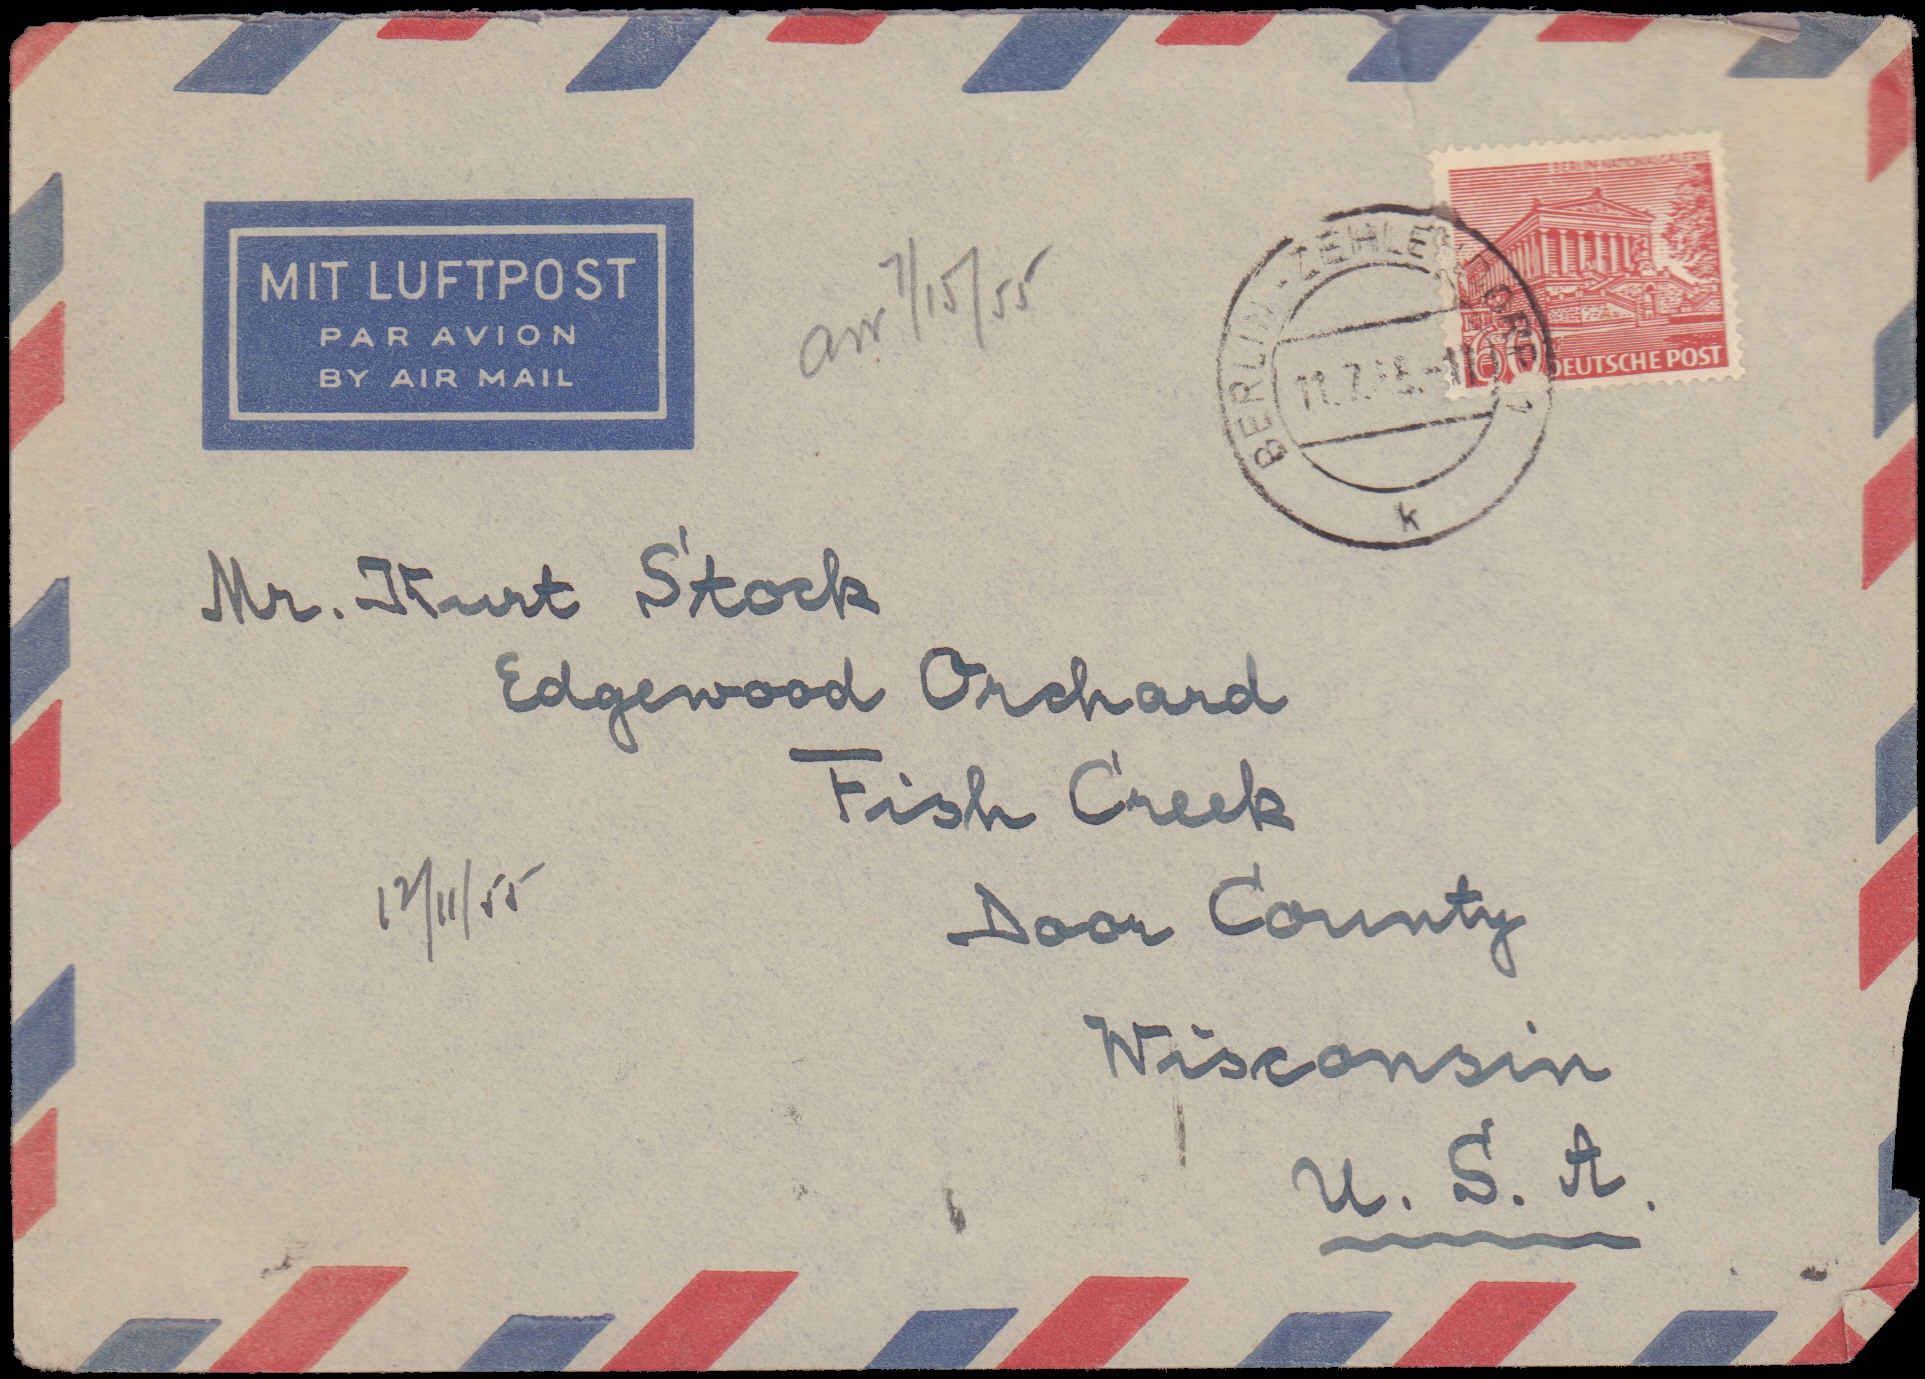 BERLIN-NATIONALGALERIE
60
DEUTSCHE POST
BERLIN-ZEHLENDORF 1
11.7.55.-11
k
MIT LUFTPOST
PAR AVION
BY AIR MAIL
arr 7/15/55
Mr. Kurt Stock
Edgewood Orchard
Fish Creek
12/11/55
Door County
Wisconsin
U. S. A.